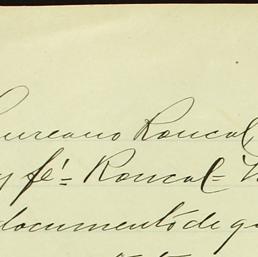 Laureano Roncal,
y fé = Roncal =
documento de q